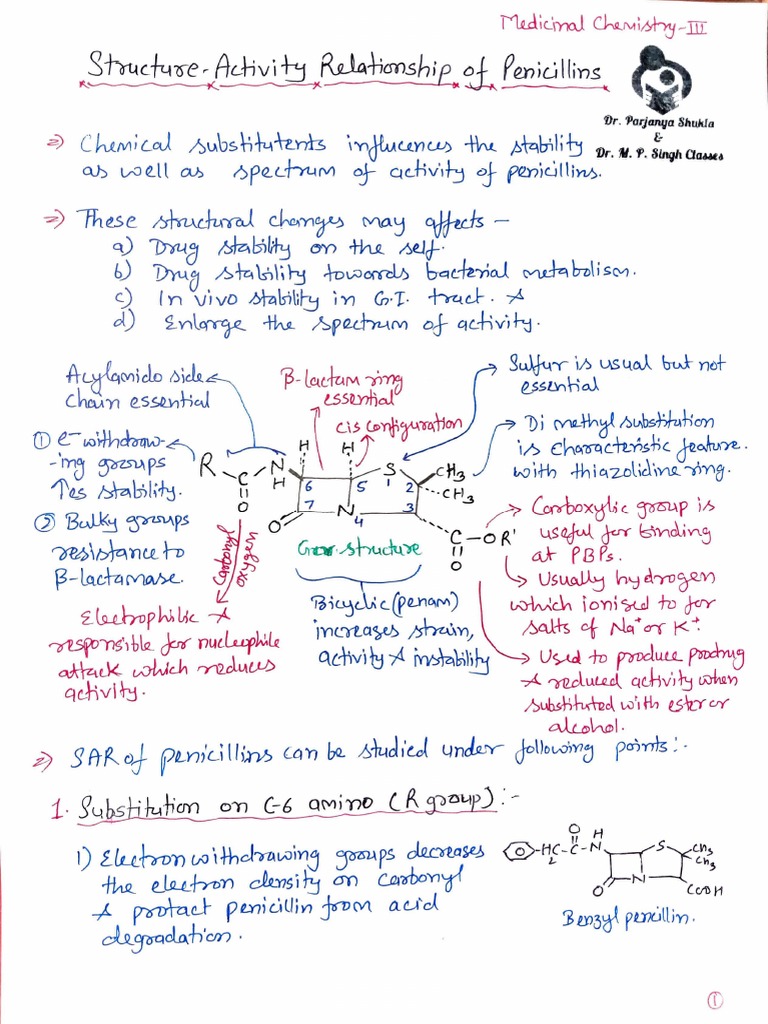 Medicinal Chemistry-III
Structure-Activity Relationship of Penicillins
Dr. Parjanya Shukla
&
Dr. M. P. Singh Classes
⇒ Chemical substitutents influcences the stability
as well as spectrum of activity of penicillins.
⇒ These structural changes may affects -
a) Drug stability on the self.
b) Drug stability towards bacterial metabolism.
c) In vivo stability in G.I. tract. &
d) Enlarge the spectrum of activity.
Acylamido side
chain essential
β-lactam ring
essential
cis configuration
Sulfur is usual but not
essential
Di methyl substitution
is characteristic feature.
with thiazolidine ring.
① e⁻ withdraw-
-ing groups
↑es stability.
② Bulky groups
resistance to
β-lactamase.
R C O N H H H S CH₃ CH₃
6 5 1 2 3 4 7
O N C O OR'
structure
Carbonyl
oxygen
Electrophilic &
responsible for nucleophile
attack which reduces
activity.
Bicyclic (penam)
increases strain,
activity & instability
Carboxylic group is
useful for binding
at PBPs.
Usually hydrogen
which ionised to for
salts of Na⁺ or K⁺.
Used to produce prodrug
& reduced activity when
substituted with ester or
alcohol.
⇒ SAR of penicillins can be studied under following points:-
1. Substitution on C-6 amino (R group):-
1) Electron withdrawing groups decreases
the electron density on carbonyl
& protact penicillin from acid
degradation.
O H
H₂C-C-N S CH₃
CH₃
O N COOH
Benzyl pencillin.
①